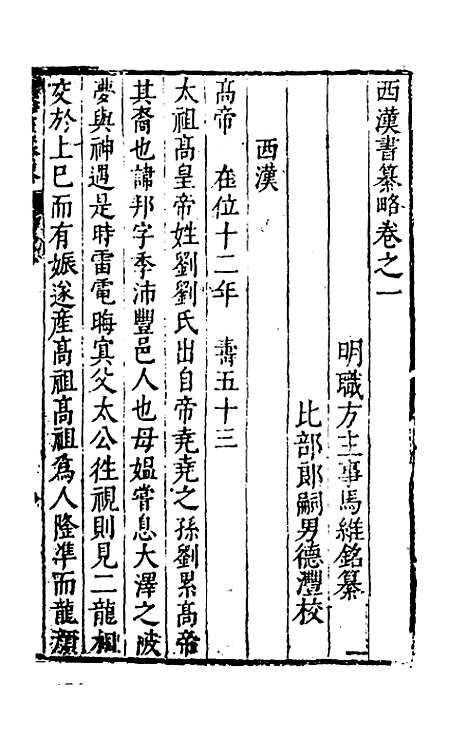 西漢書纂略卷之一
明職方主事馬維銘纂
比部郎嗣男德灃校
西漢
高帝　在位十二年　壽五十三
太祖髙皇帝姓劉劉氏出自帝堯堯之孫劉累髙帝
其裔也諱邦字季沛豐邑人也母媪嘗息大澤之陂
夢與神遇是時雷電晦冥父太公徃視則見二龍相
交於上巳而有娠遂產高祖髙祖爲人隆準而龍顔